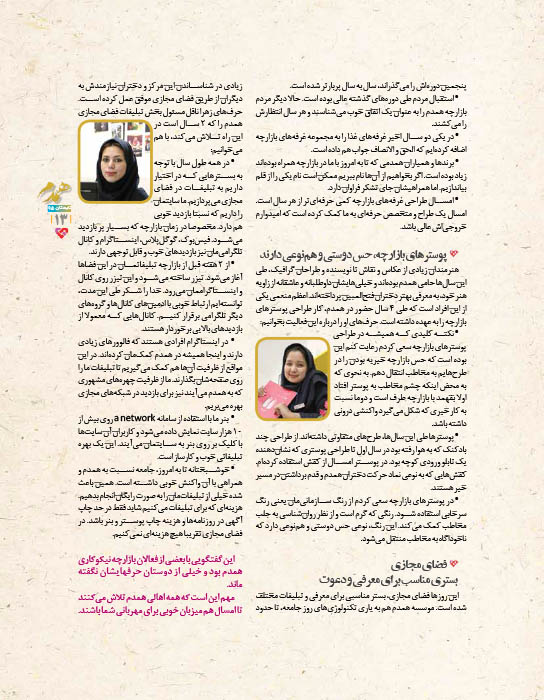 پنجمین دوره‌اش را می‌گذراند، سال به سال پربارتر شده است.
• استقبال مردم طی دوره‌های گذشته عالی بوده است. حالا دیگر مردم
بازارچه همدم را به عنوان یک اتفاق خوب می‌شناسند و هر سال انتظارش
را می‌کشند.
• در یکی دو سال اخیر غرفه‌های غذا را به مجموعه غرفه‌های بازارچه
اضافه کرده‌ایم که الحق و الانصاف جواب هم داده است.
• برندها و همیاران همدمی که تا به امروز با ما در بازارچه همراه بوده‌اند
زیاد بوده است. اگر بخواهیم از آن‌ها نام ببریم ممکن است نام یکی را از قلم
بیاندازیم. اما همراهیشان جای تشکر فراوان دارد.
• امسال طراحی غرفه‌های بازارچه کمی حرفه‌ای‌تر از هر سال است.
امسال یک طراح و متخصص حرفه‌ای به ما کمک کرده است که امیدوارم
خروجی‌اش عالی باشد.
پوسترهای بازارچه، حس دوستی و هم‌نوعی دارند
هنرمندان زیادی از عکاس و نقاش تا نویسنده و طراحان گرافیک، طی
این سال‌ها حامی همدم بوده‌اند و خیلی‌هایشان داوطلبانه و عاشقانه از زاویه
هنر خود، به معرفی بهتر دختران فتح‌المبین پرداخته‌اند. اعظم منعمی یکی
از این افراد است که طی ۴ سال حضور در همدم، کار طراحی پوسترهای
بازارچه را به عهده داشته است. حرف‌های او را درباره این فعالیت بخوانیم:
• نکته کلیدی که همیشه در طراحی
پوسترهای بازارچه سعی کردم رعایت کنم این
بوده است که حس بازارچه خیریه بودن را در
طرح‌هایم به مخاطب انتقال دهم. به نحوی که
به محض اینکه چشم مخاطب به پوستر افتاد
اولا بفهمد با بازارچه طرف است و دوما نسبت
به کار خیری که شکل می‌گیرد واکنشی درونی
داشته باشد.
• پوسترها طی این سال‌ها، طرح‌های متفاوتی داشته‌اند. از طراحی چند
بادکنک که به هوا رفته بود در سال اول تا طراحی پوستری که نشان‌دهنده
یک تابلو ورودی کوچه بود. در پوستر امسال از کفش استفاده کرده‌ام.
کفش‌هایی که به نوعی نماد حرکت دختران همدم و قدم برداشتن در مسیر
خیر هستند.
• در پوسترهای بازارچه سعی کردم از رنگ سازمانی‌مان یعنی رنگ
سرخابی استفاده شود. رنگی که گرم است و از نظر روان‌شناسی به جلب
مخاطب کمک می‌کند. این رنگ، نوعی حس دوستی و هم‌نوعی دارد که
ناخودآگاه به مخاطب منتقل می‌شود.
فضای مجازی
بستری مناسب برای معرفی و دعوت
این روزها فضای مجازی، بستر مناسبی برای معرفی و تبلیغات مختلف
شده است. موسسه همدم هم به یاری تکنولوژی‌های روز جامعه، تا حدود
زیادی در شناساندن این مرکز و دختران نیازمندش به
دیگران از طریق فضای مجازی موفق عمل کرده است.
حرف‌های زهرا ناقل مسئول بخش تبلیغات فضای مجازی
همدم را که ۲ سال است در
این راه تلاش می‌کند، با هم
می‌خوانیم:
• در همه طول سال با توجه
به بسترهایی که در اختیار
داریم به تبلیغات در فضای
مجازی می‌پردازیم. ما سایتمان
را داریم که نسبتا بازدید خوبی
هم دارد. مخصوصا در زمان بازارچه که بسیار پر بازدید
می‌شود. فیس‌بوک، گوگل‌پلاس، اینستاگرام و کانال
تلگراممان نیز بازدیدهای خوب و قابل توجهی دارند.
• از ۲ هفته قبل از بازارچه تبلیغاتمان در این فضاها
آغاز می‌شود. تیزر ساخته می‌شود و این تیزر روی کانال
و اینستاگراممان می‌رود. خدا را شکر طی این مدت،
توانسته‌ایم ارتباط خوبی با ادمین‌های کانال‌ها و گروه‌های
دیگر تلگرامی برقرار کنیم. کانال‌هایی که معمولا از
بازدیدهای بالایی برخوردار هستند.
• در اینستاگرام افرادی هستند که فالوورهای زیادی
دارند و اینجا همیشه در همدم کمک‌مان کرده‌اند. در این
مواقع از ظرفیت آن‌ها هم کمک می‌گیریم تا تبلیغات ما را
روی صفحه‌شان بگذارند. ما از ظرفیت چهره‌های مشهوری
که به همدم می‌آیند نیز برای بازدید در شبکه‌های مجازی
بهره می‌بریم.
• بنر ما با استفاده از سامانه a network روی بیش از
۱۰ هزار سایت نمایش داده می‌شود و کاربران آن سایت‌ها
با کلیک بر روی بنر به سایتمان می‌آیند. این یک بهره
تبلیغاتی خوب و کارساز است.
• خوشبختانه تا به امروز، جامعه نسبت به همدم و
همراهی با آن واکنش خوبی داشته است. همین باعث
شده خیلی از تبلیغات‌مان را به صورت رایگان انجام بدهیم.
هزینه‌ای که برای تبلیغات می‌کنیم شاید فقط در حد چاپ
آگهی در روزنامه‌ها و هزینه چاپ پوستر و بنر باشد. در
فضای مجازی تقریبا هیچ هزینه‌ای نمی‌کنیم.
این گفتگویی با بعضی از فعالان بازارچه نیکوکاری
همدم بود و خیلی از دوستان حرفهایشان نگفته
ماند.
مهم این است که همه اهالی همدم تلاش می‌کنند
تا امسال هم میزبان خوبی برای مهربانی شما باشند.
همدم
۱۳